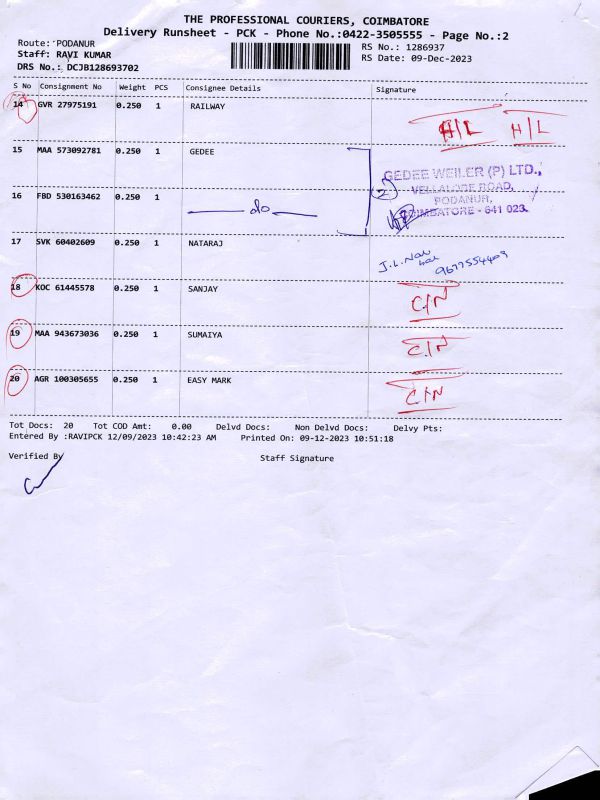 THE PROFESSIONAL COURIERS, COIMBATORE
Delivery Runsheet - PCK - Phone No.:0422-3505555 - Page No.:2
Route: PODANUR
RS No.: 1286937
Staff: RAVI KUMAR
RS Date: 09-Dec-2023
DRS No.: DCJB128693702
S No Consignment No Weight PCS Consignee Details Signature
14 GVR 27975191 0.250 1 RAILWAY H/L H/L
15 MAA 573092781 0.250 1 GEDEE
GEDEE WEILER (P) LTD.,
VELLALORE ROAD,
PODANUR,
COIMBATORE - 641 023.
2
16 FBD 530163462 0.250 1 do
17 SVK 60402609 0.250 1 NATARAJ
9677554409
18 KOC 61445578 0.250 1 SANJAY C/N
19 MAA 943673036 0.250 1 SUMAIYA C/N
20 AGR 100305655 0.250 1 EASY MARK C/N
Tot Docs: 20 Tot COD Amt: 0.00 Delvd Docs: Non Delvd Docs: Delvy Pts:
Entered By :RAVIPCK 12/09/2023 10:42:23 AM Printed On: 09-12-2023 10:51:18
Verified By Staff Signature